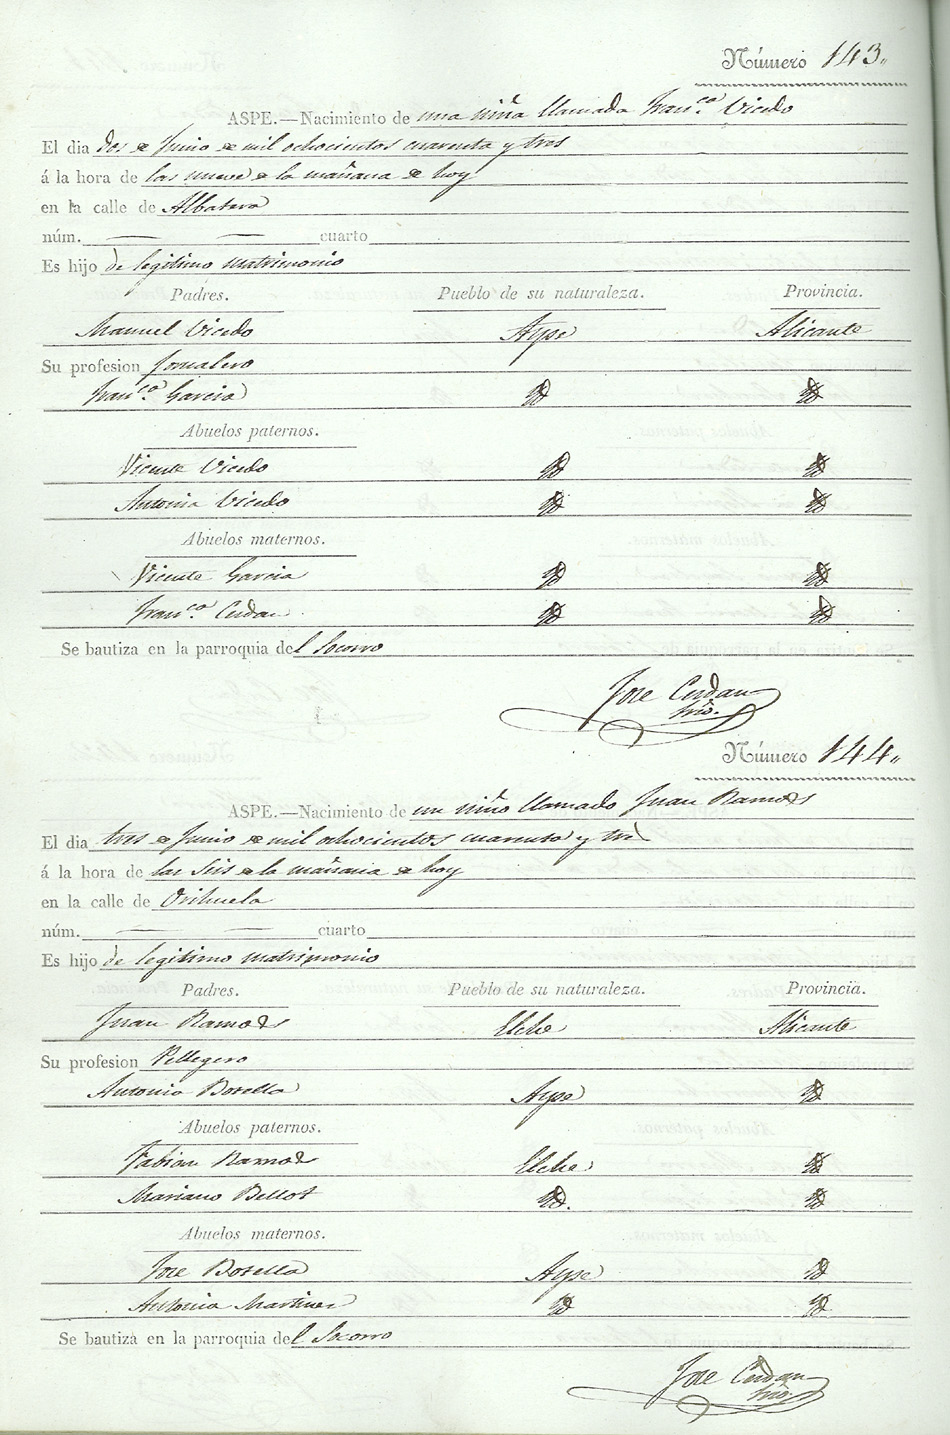 Número 143.
ASPE.—Nacimiento de una niña llamada Fran.ca Vicedo
El dia dos de Junio de mil ochocientos cuarenta y tres
á la hora de las nueve de la mañana de hoy
en la calle de Albatera
núm. — — cuarto
Es hijo de legitimo matrimonio
Padres. Pueblo de su naturaleza. Provincia.
Manuel Vicedo Aspe Alicante
Su profesion Jornalero
Fran.ca Garcia Yd Yd
Abuelos paternos.
Vicente Vicedo Yd Yd
Antonia Vicedo Yd Yd
Abuelos maternos.
Vicente Garcia Yd Yd
Fran.ca Cerdan Yd Yd
Se bautiza en la parroquia del Socorro
Jose Cerdan
Srio.
Número 144.
ASPE.—Nacimiento de un niño llamado Juan Ramos
El dia tres de Junio de mil ochocientos cuarenta y tres
á la hora de las seis de la mañana de hoy
en la calle de Orihuela
núm. — — cuarto
Es hijo de legitimo matrimonio
Padres. Pueblo de su naturaleza. Provincia.
Juan Ramos Elche Alicante
Su profesion Pellegero
Antonia Botella Aspe Yd
Abuelos paternos.
Fabian Ramos Elche Yd
Mariana Bellot Yd. Yd
Abuelos maternos.
Jose Botella Aspe Yd
Antonia Martinez Yd Yd
Se bautiza en la parroquia del Socorro
Jose Cerdan
Srio.